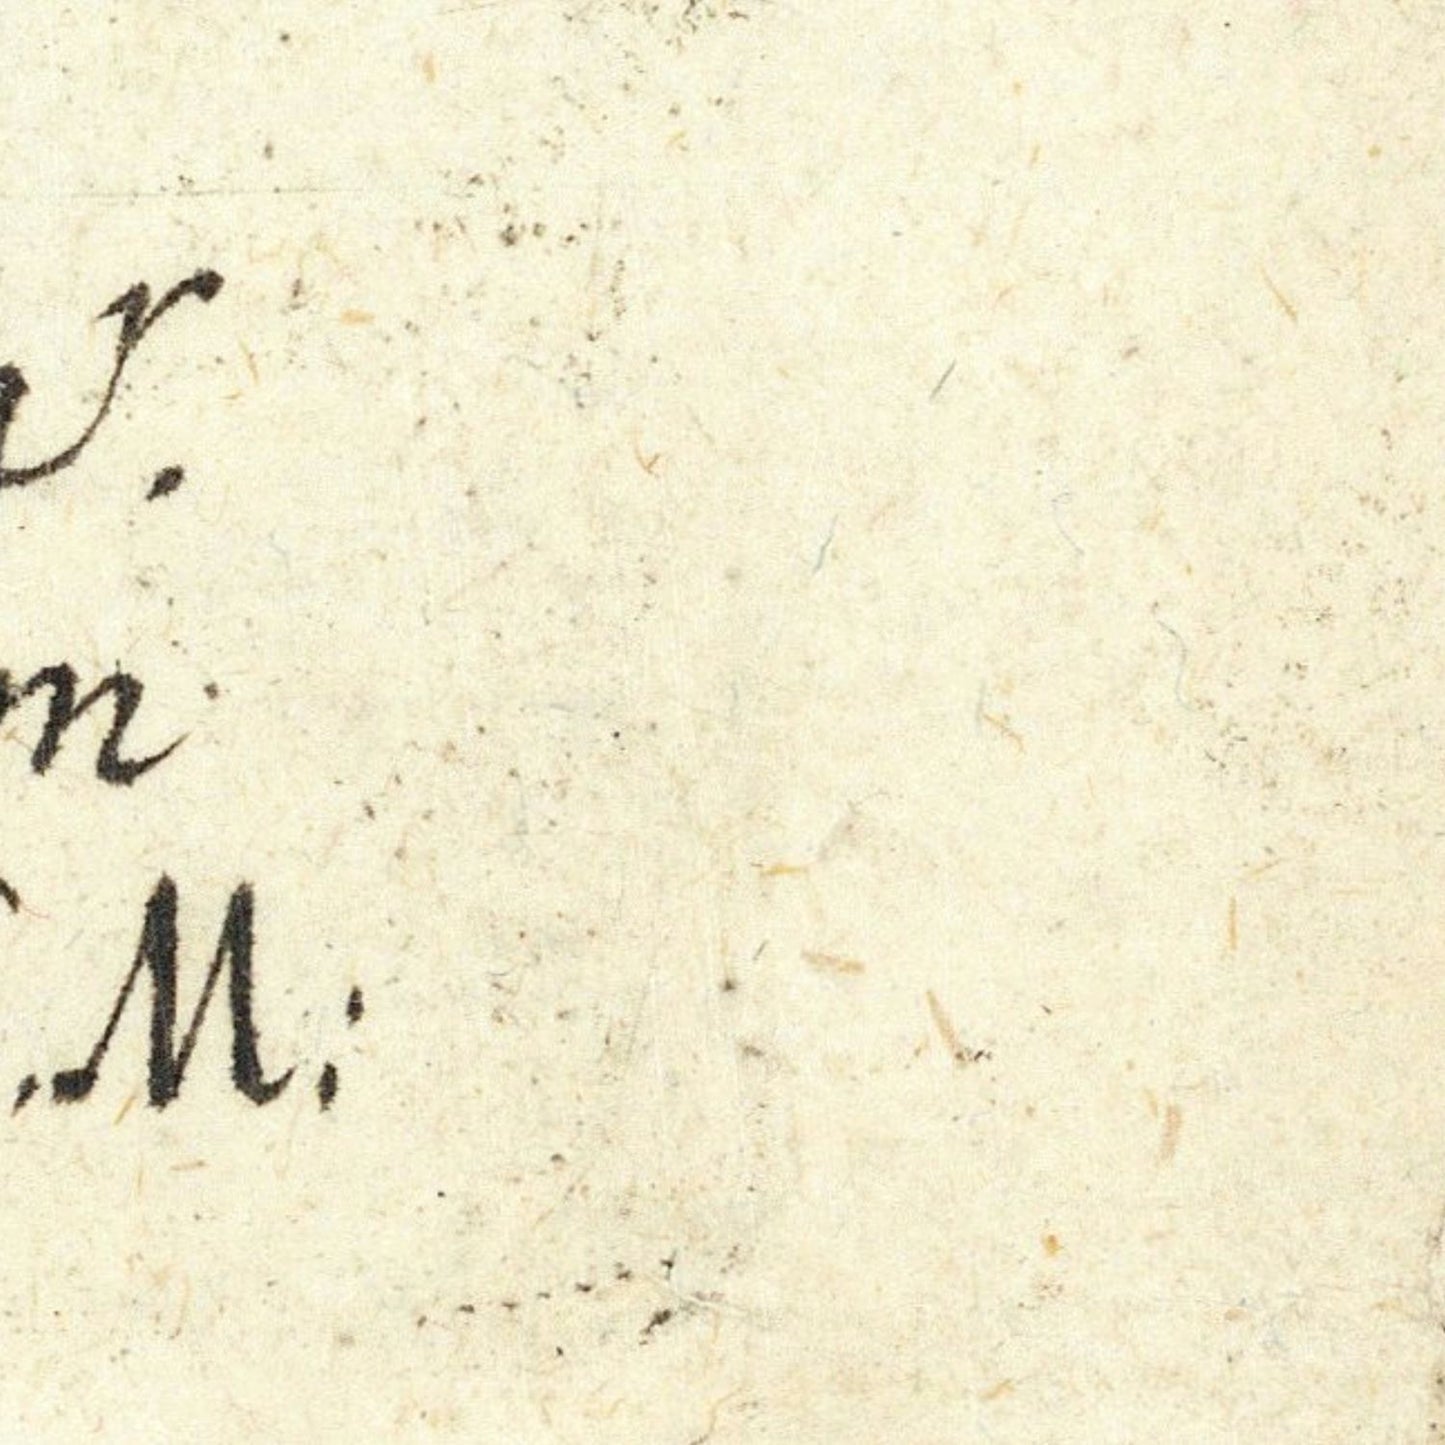 r.
m
.M: